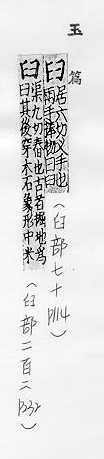 玉篇
𦥑 居六切叉手也
兩手捧物曰𦥑
(𦥑部七十 P114)
臼 渠九切舂也古者掘地爲
臼其後穿木石象形中米
(臼部二百二 P232)